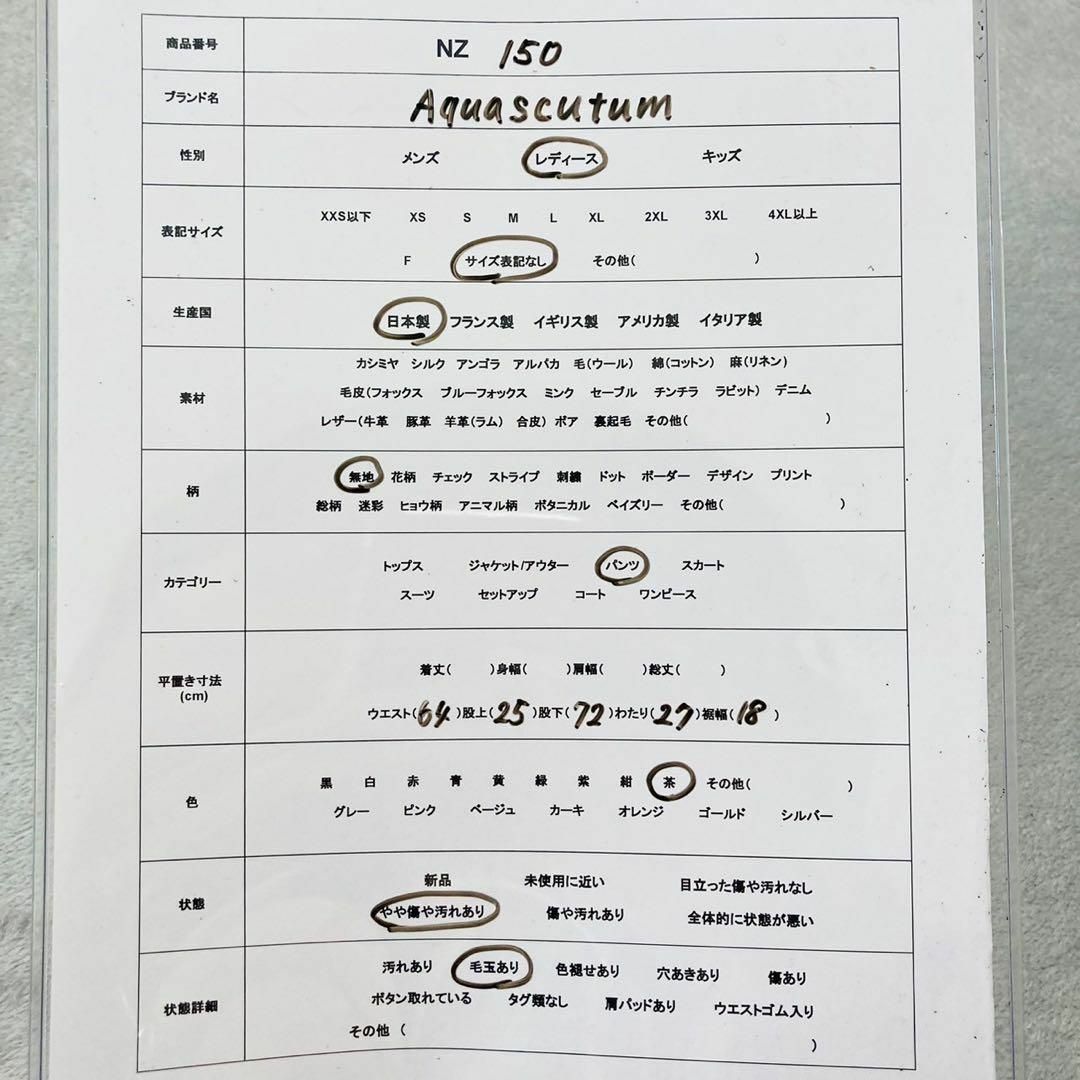 商品番号 NZ 150
ブランド名 Aquascutum
性別 メンズ レディース キッズ
XXS以下 XS S M L XL 2XL 3XL 4XL以上
表記サイズ
F サイズ表記なし その他( )
生産国 日本製 フランス製 イギリス製 アメリカ製 イタリア製
カシミヤ シルク アンゴラ アルパカ 毛(ウール) 綿(コットン) 麻(リネン)
素材 毛皮(フォックス ブルーフォックス ミンク セーブル チンチラ ラビット) デニム
レザー(牛革 豚革 羊革(ラム) 合皮) ボア 裏起毛 その他( )
柄 無地 花柄 チェック ストライプ 刺繍 ドット ボーダー デザイン プリント
総柄 迷彩 ヒョウ柄 アニマル柄 ボタニカル ペイズリー その他( )
トップス ジャケット/アウター パンツ スカート
カテゴリー
スーツ セットアップ コート ワンピース
着丈( )身幅( )肩幅( )総丈( )
平置き寸法
(cm)
ウエスト(64)股上(25)股下(72)わたり(27)裾幅(18)
黒 白 赤 青 黄 緑 紫 紺 茶 その他( )
色
グレー ピンク ベージュ カーキ オレンジ ゴールド シルバー
新品 未使用に近い 目立った傷や汚れなし
状態
やや傷や汚れあり 傷や汚れあり 全体的に状態が悪い
汚れあり 毛玉あり 色褪せあり 穴あきあり 傷あり
状態詳細 ボタン取れている タグ類なし 肩パッドあり ウエストゴム入り
その他 ( )